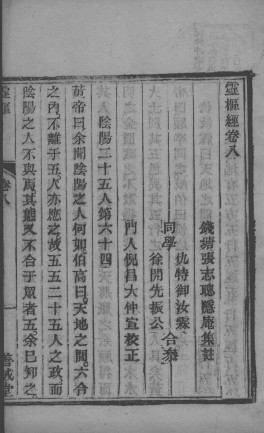 靈樞經卷八
錢塘張志聰隱庵集註
同學
仇特御汝霖
徐開先振公
合參
門人倪昌大仲宣校正
陰陽二十五人第六十四
黃帝曰余聞陰陽之人何如伯高曰天地之間六合
之內不離于五人亦應之故五五二十五人之政而
陰陽之人不與焉其態又不合于眾者五余已知之
靈樞
卷八
一
善成堂